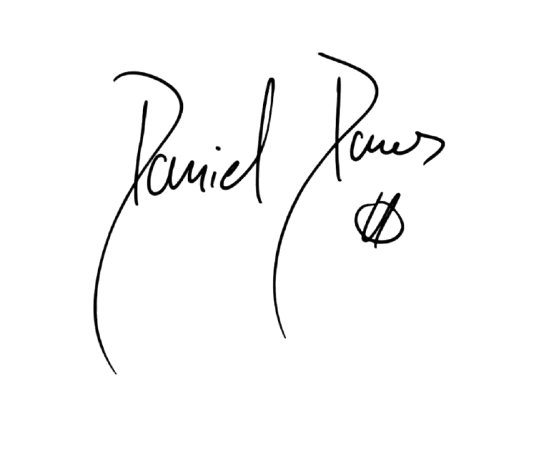 Daniel Danes